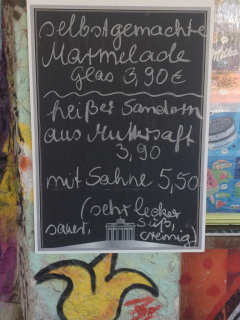 selbstgemachte
Marmelade
Glas 3,90 €
heißer Sanddorn
aus Muttersaft
3,90
mit Sahne 5,50
(sehr lecker
sauer, süß,
cremig)
Milka